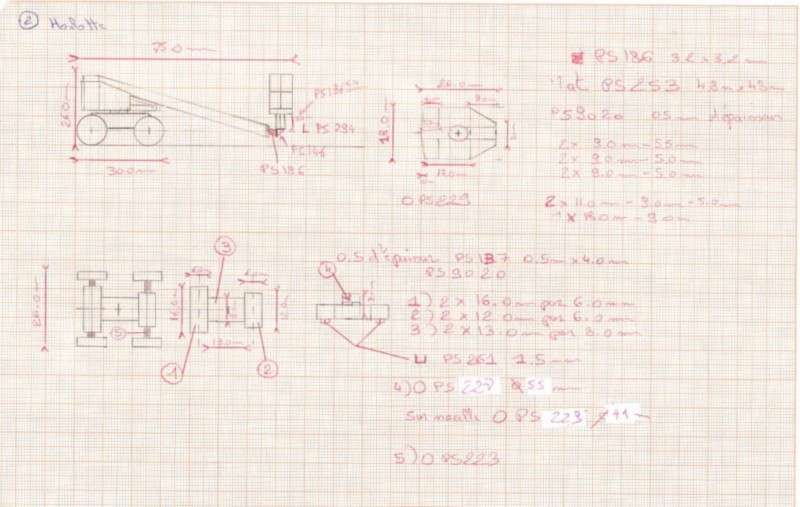 2 Haulotte
75.0 mm
26.0 mm
30.0 mm
L PS 294
PS 146
PS 196
26.0 mm
9.0 mm
18.0 mm
12.0 mm
O PS 229
PS 186 3.2 x 3.2 mm
Mat PS 253 4.8 mm x 4.8 mm
PS 9020 0.5 mm d'épaisseur
2 x 9.0 mm - 5.5 mm
2 x 9.0 mm - 5.0 mm
2 x 9.0 mm - 5.0 mm
2 x 11.0 mm - 9.0 mm - 5.0 mm
1 x 18.0 mm - 9.0 mm
26.0 mm
5
16.0 mm
3
12.0 mm
13.0 mm
1
2
4
0.5 d'épaisseur PS 137 0.5 mm x 4.0 mm
PS 9020
1) 2 x 16.0 mm par 6.0 mm
2) 2 x 12.0 mm par 6.0 mm
3) 2 x 13.0 mm par 8.0 mm
PS 261 1.5 mm
4) O PS 227 55 mm
Sur maille O PS 229 41
5) O PS 223